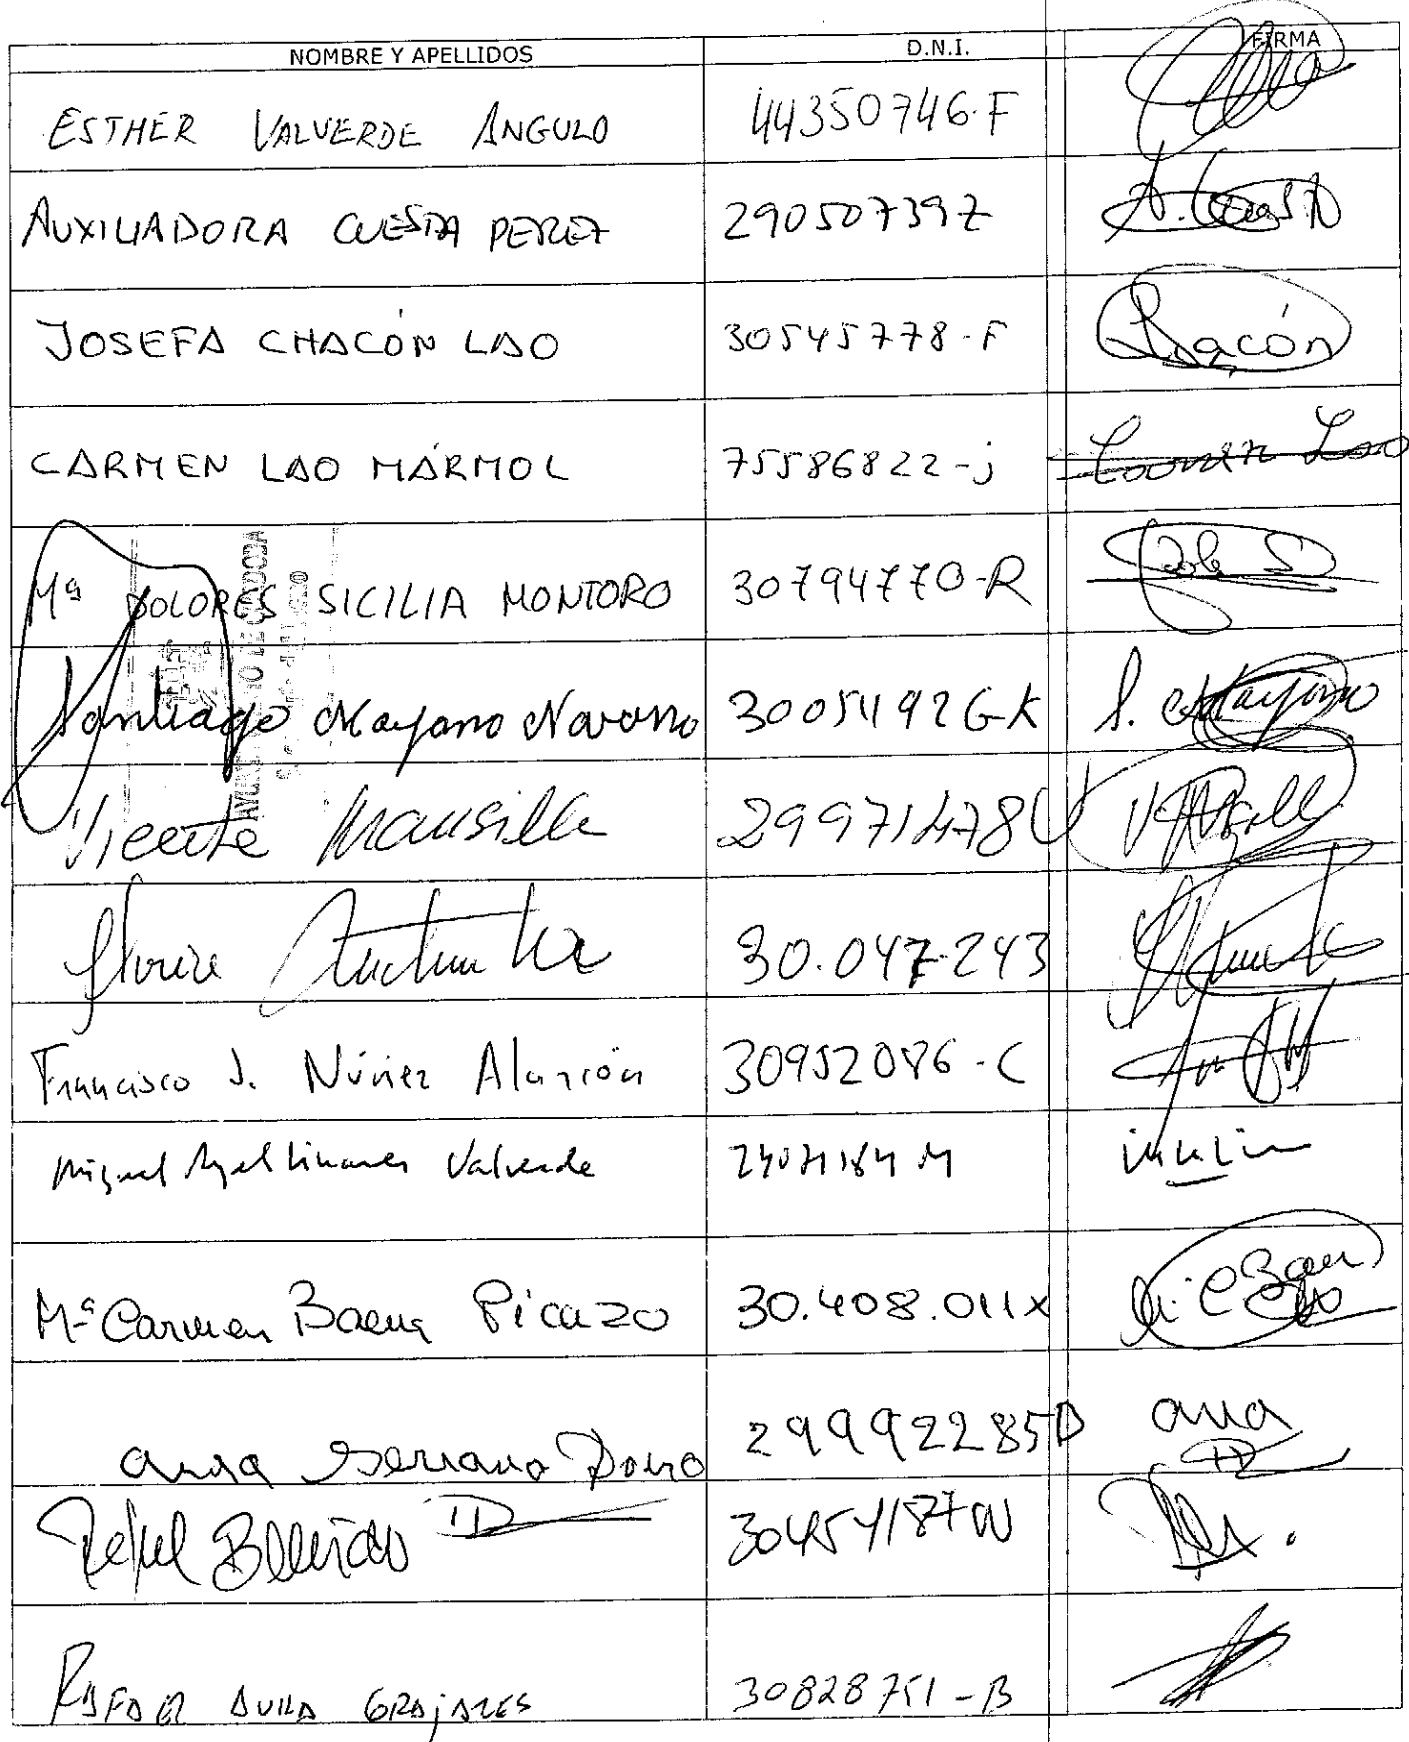 NOMBRE Y APELLIDOS D.N.I. FIRMA
ESTHER VALVERDE ANGULO 44350746-F
AUXILIADORA CUESTA PEREZ 29050739Z A. Cuesta
JOSEFA CHACÓN LAO 30545778-F Chacón
CARMEN LAO MÁRMOL 75586822-j Carmen Lao
Mª DOLORES SICILIA MONTORO 30794770-R
Santiago Mayano Navarro 30054926-K S. Mayano
Vicente Mansilla 29971478
30.047.243
Francisco J. Núñez Alarcón 30952086-C
Miguel Angel Linares Valverde
Mª Carmen Baena Picazo 30.408.011X
Ana Serrano 29992285D ana
Rafael Bellido 30454187W
RAFAEL AVILA GRAJALES 30828751-B